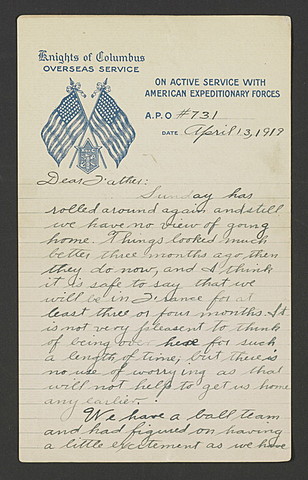 Knights of Columbus
OVERSEAS SERVICE
ON ACTIVE SERVICE WITH
AMERICAN EXPEDITIONARY FORCES
A.P.O #731
DATE April 13, 1919
Dear Father:
Sunday has
rolled around again and still
we have no view of going
home. Things looked much
better three months ago then
they do now, and I think
it is safe to say that we
will be in France for at
least three or four months. It
is not very pleasent to think
of being over here for such
a length of time, but there is
no use of worrying as that
will not help to get us home
any earlier.
We have a ball team
and had figured on having
a little excitement as we have